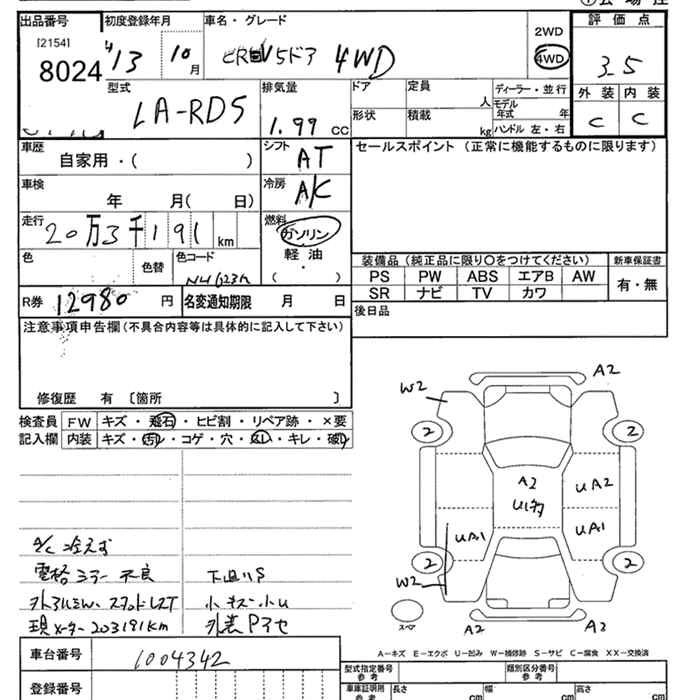 出品番号 初度登録年月 車名・グレード 評価点
[2154]
8024 '13 10月 CRV 5ドア 4WD 2WD 4WD 3.5
型式 LA-RD5
排気量 1.99 CC
ドア 定員 人 ディーラー・並行
形状 積載 kg モデル年式 年 ハンドル 左・右
外装 内装
C C
車歴 自家用・( ) シフト AT セールスポイント (正常に機能するものに限ります)
車検 年 月( 日) 冷房 A/C
走行 20万3千191km 燃料 ガソリン
軽油
・
( )
色 色替 色コード
装備品 (純正品に限り〇をつけてください) 新車保証書
PS PW ABS エアB AW 有・無
SR ナビ TV カワ
R券 12980円 名変通知期限 月 日 後日品
注意事項申告欄(不具合内容等は具体的に記入して下さい)
修復歴 有 [箇所 ]
検査員 FW キズ・飛石・ヒビ割・リペア跡・×要
記入欄 内装 キズ・汚レ・コゲ・穴・スレ・キレ・破レ
A/C 冷えず
電格ミラー不良 下廻りS
小キズ・小U
現メーター203191km 外装Pアセ
A2
W2
2 2
A2 UA2
UA1 UA1
2 2
W2
スペア
A2 A2
A-キズ E-エクボ U-凹み W-補修跡 S-サビ C-腐食 XX-交換済
車台番号 1004342
型式指定番号参考 類別区分番号参考
登録番号
車庫証明用参考 長さ cm 幅 cm 高さ cm